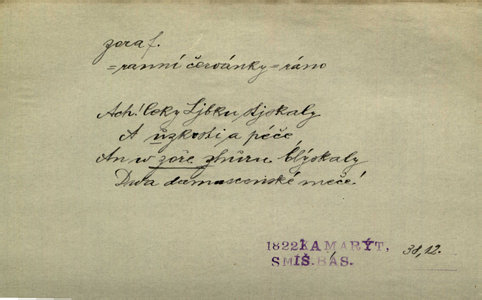 zora f.
= ranní červánky = ráno
Ach! Čeky Ljbku stjskaly
A úzkosti a péče,
An w zóře zhůru blýskaly
Dwa damascenské meče!
1822 KAMARÝT,
SMÍŠ. BÁS. 38, 12.